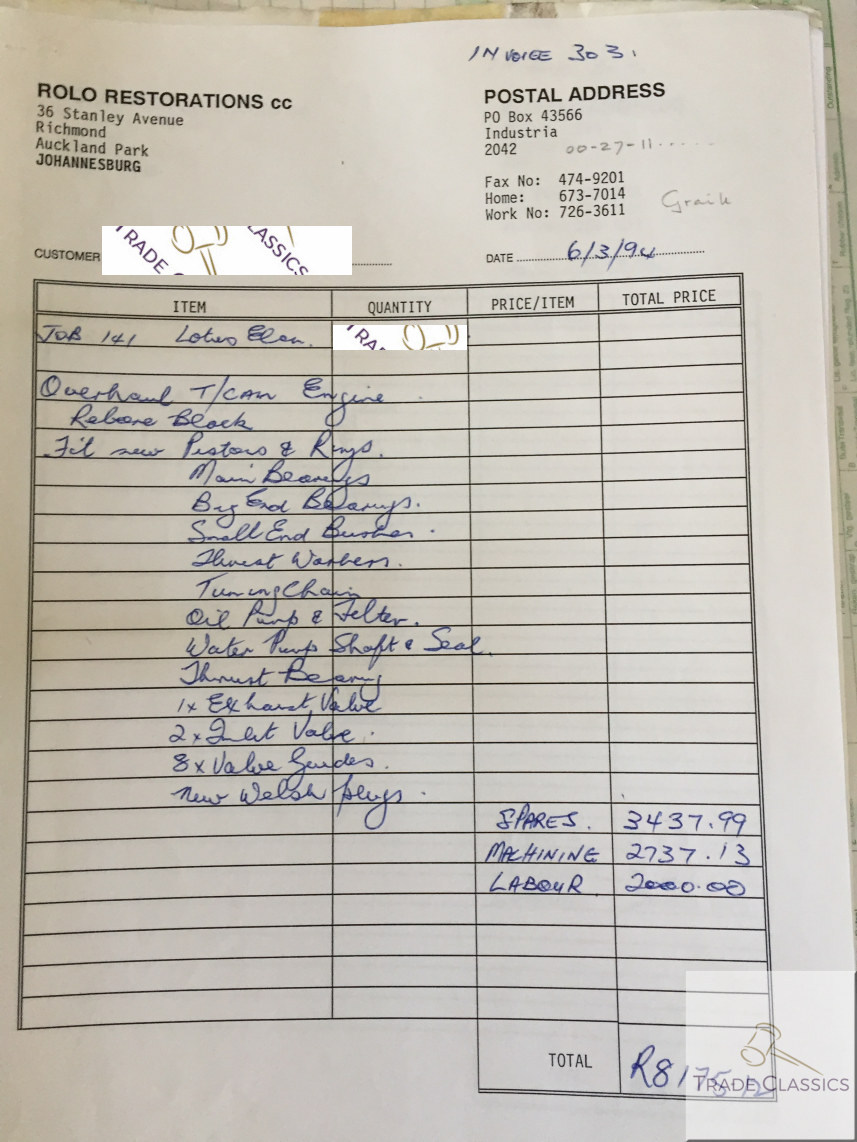 INVOICE 303.
ROLO RESTORATIONS cc
36 Stanley Avenue
Richmond
Auckland Park
JOHANNESBURG
POSTAL ADDRESS
PO Box 43566
Industria
2042 00-27-11......
Fax No: 474-9201
Home: 673-7014
Work No: 726-3611
CUSTOMER TRADE CLASSICS
DATE 6/3/94
ITEM QUANTITY PRICE/ITEM TOTAL PRICE
JOB 141 Lotus Elan.
Overhaul T/CAM Engine
Rebore Block
Fit new Pistons & Rings.
Main Bearings
Big End Bearings.
Small End Bushes.
Thrust Washers.
Timing Chain
Oil Pump & Filter.
Water Pump Shaft & Seal.
Thrust Bearing
1x Exhaust Valve
2x Inlet Valve.
8x Valve Guides.
New Welsh plugs.
SPARES. 3437.99
MACHINING 2737.13
LABOUR 2000.00
TOTAL R8175.12
TRADE CLASSICS